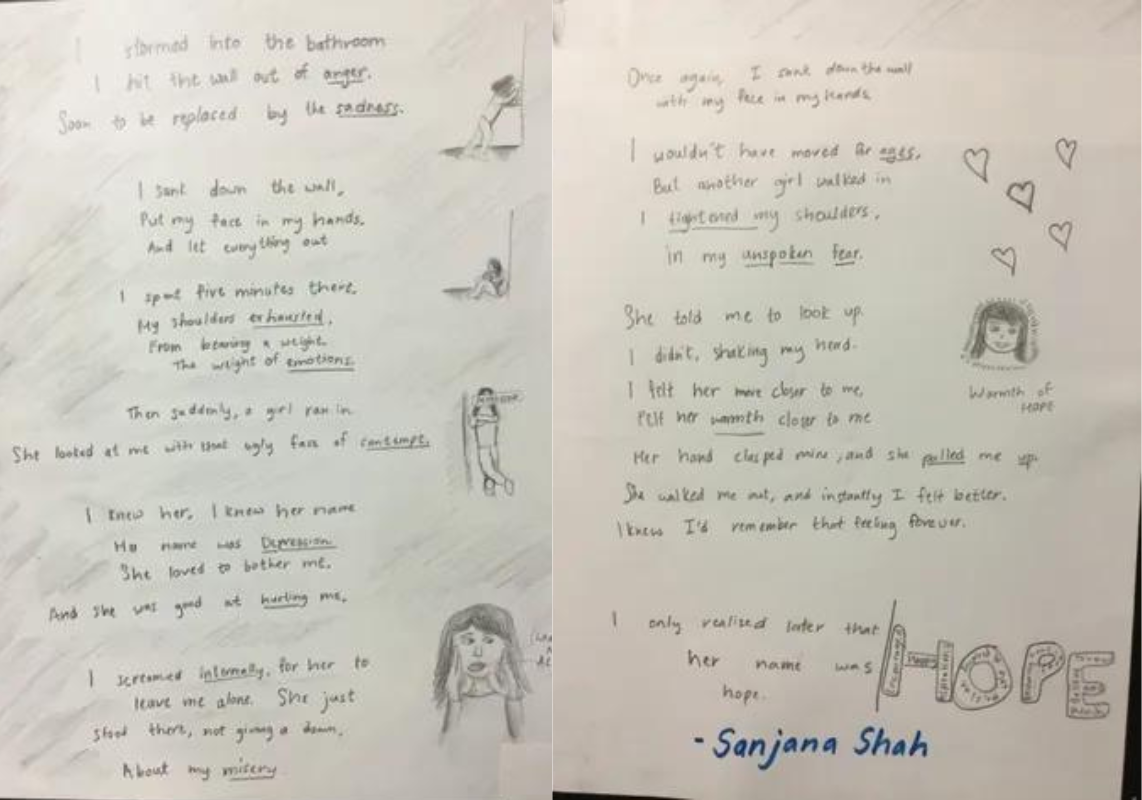 I stormed into the bathroom
I hit the wall out of anger.
Soon to be replaced by the sadness.
I sank down the wall,
Put my face in my hands.
And let everything out
I spent five minutes there.
My shoulders exhausted,
From bearing a weight.
The weight of emotions.
Then suddenly, a girl ran in
She looked at me with that ugly face of contempt.
I knew her, I knew her name
Her name was Depression
She loved to bother me.
And she was good at hurting me.
I screamed internally, for her to
leave me alone. She just
stood there, not giving a damn,
About my misery
Once again, I sank down the wall
with my face in my hands
I wouldn't have moved for ages,
But another girl walked in
I tightened my shoulders,
in my unspoken fear.
She told me to look up
I didn't, shaking my head.
I felt her move closer to me,
Felt her warmth closer to me
Her hand clasped mine, and she pulled me up.
She walked me out, and instantly I felt better.
I knew I'd remember that feeling forever.
Warmth of
HOPE
I only realised later that
her name was
hope.
HOPE
- Sanjana Shah